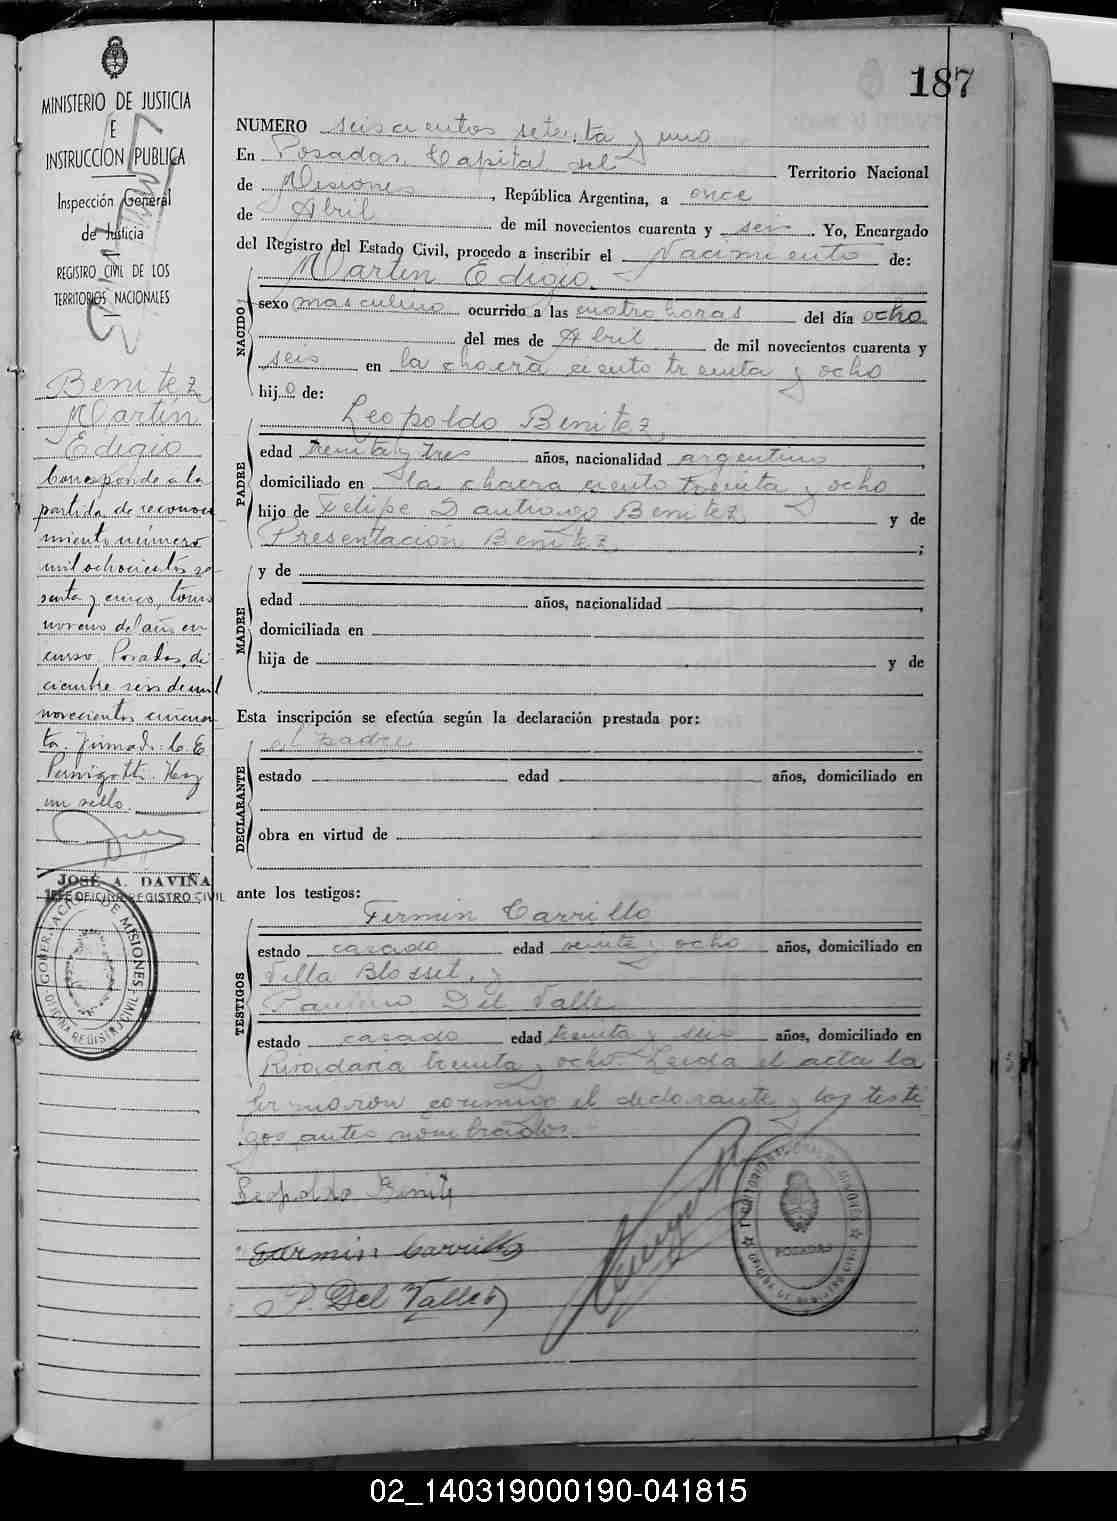 187
MINISTERIO DE JUSTICIA
E
INSTRUCCIÓN PUBLICA
Inspección General
de Justicia
REGISTRO CIVIL DE LOS
TERRITORIOS NACIONALES
Benitez
Martin
Edigio
Corresponde a la
partida de reconoci
miento número
mil ochocientos se
senta y cinco, tomo
noveno del año en
curso. Posadas, di
ciembre seis de mil
novecientos cincuen
ta. Firmado: C. E.
Pernigotti. Hay
un sello.
JOSÉ A. DAVIÑA
JEFE OFICINA REGISTRO CIVIL
GOBERNACION DE MISIONES
OFICINA REGISTRO CIVIL
NUMERO seiscientos setenta y uno
En Posadas, Capital del Territorio Nacional
de Misiones, República Argentina, a once
de Abril de mil novecientos cuarenta y seis. Yo, Encargado
del Registro del Estado Civil, procedo a inscribir el Nacimiento de:
Martin Edigio.
NACIDO
sexo masculino ocurrido a las cuatro horas del día ocho
del mes de Abril de mil novecientos cuarenta y
seis en la chacra ciento treinta y ocho
hijo de:
Leopoldo Benitez
PADRE
edad treinta y tres años, nacionalidad argentino,
domiciliado en la chacra ciento treinta y ocho
hijo de Felipe Santiago Benitez y de
Presentación Benitez;
MADRE
y de
edad años, nacionalidad,
domiciliada en
hija de y de
Esta inscripción se efectúa según la declaración prestada por:
el padre
DECLARANTE
estado edad años, domiciliado en
obra en virtud de
ante los testigos:
Fermin Carrillo
TESTIGOS
estado casado edad y ocho años, domiciliado en
Villa Blosset, y
Paulino Del Valle
estado casado edad treinta y seis años, domiciliado en
Rivadavia treinta y ocho. Leida el acta la
firmaron conmigo el declarante y los testi
gos antes nombrados.
Leopoldo Benitez
Fermin Carrillo
P. Del Valle
TERRITORIO NACIONAL DE MISIONES
POSADAS
OFICINA DE REGISTRO CIVIL
02_140319000190-041815